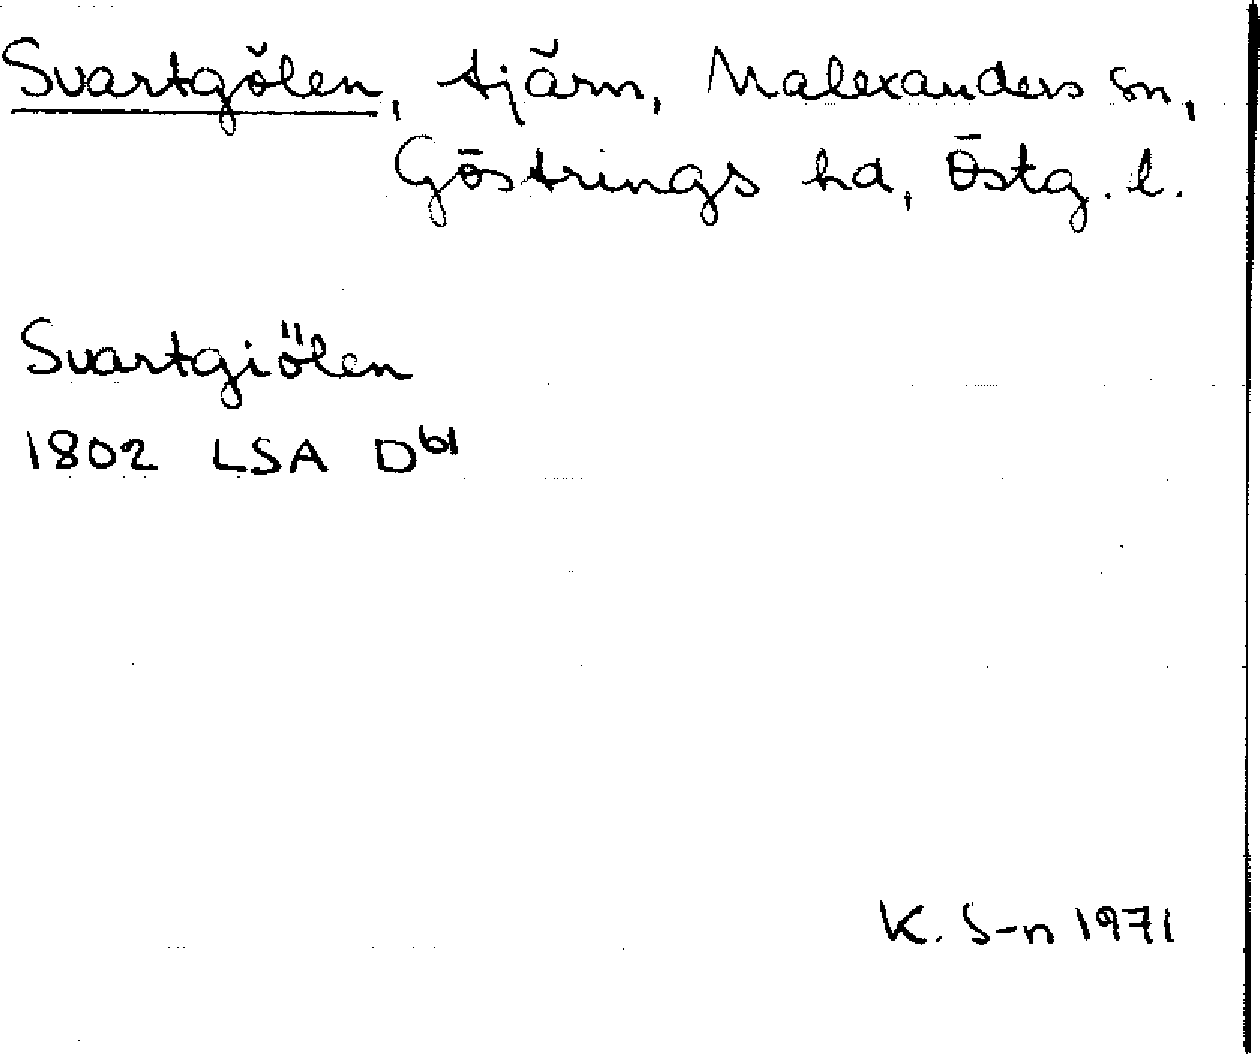 Svartgölen, tjärn, Malexanders sn,
Göstrings hd, Östg. l.
Svartgiölen
1802 LSA D61
K. S-n 1971